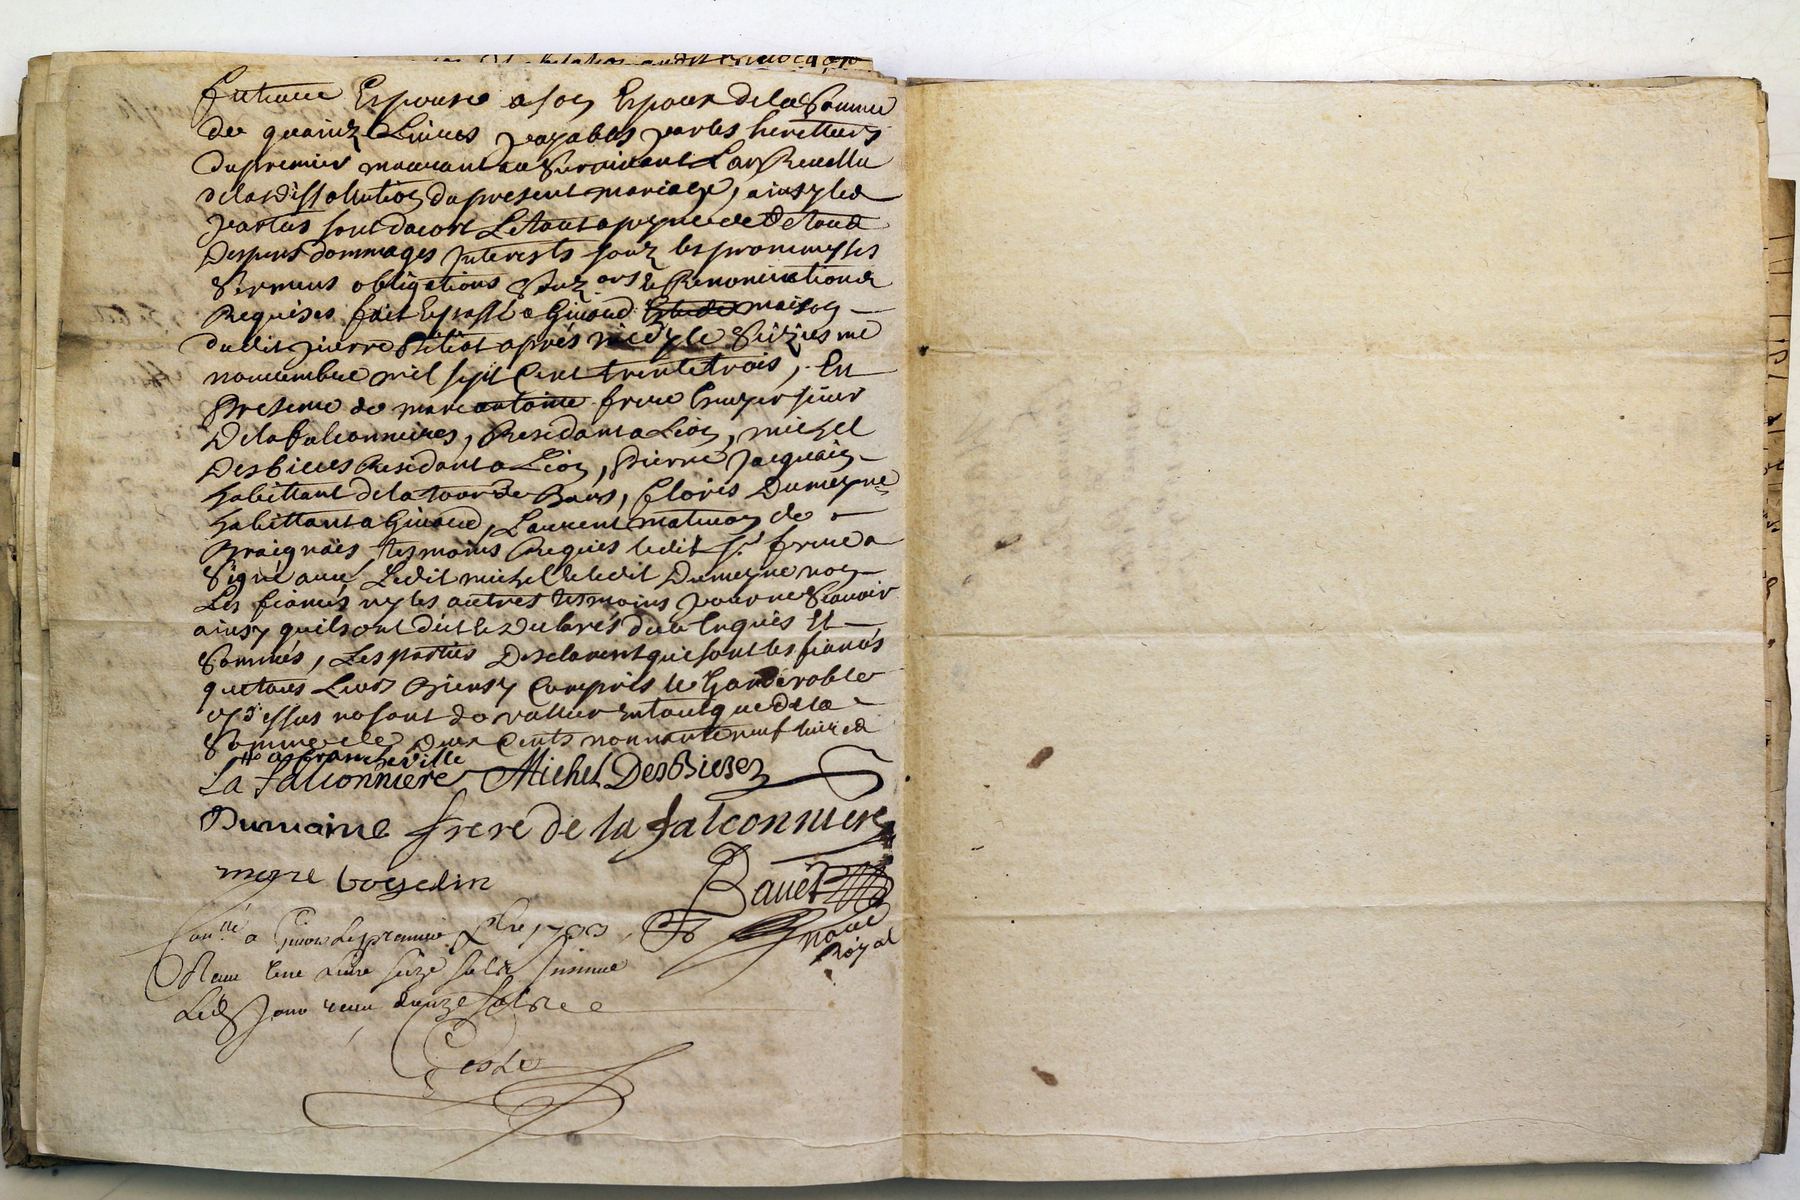 future Espouse a son Espoux de la Somme
de quainze Livres payables par les herettiers
du premier mourant au Survivant L'an Revollu
de la dissollution du present mariage, ainsy les
parties sont dacort Le tout a peyne de De touts
Despens dommages Interests soubz les prommesses
Serments obligations Soubz ons & Renonciations
Requises fait Et passé a Givord maison
dudit pierre après midy le Seiziesme
novembre mil sept Cent trente trois, En
Presence de marc antoine frere Escuyer sieur
De la falconnieres, Residant a Lion, michel
Desbieres Residant a Lion, Pierre Jacquain
habittant de la tour de Bars, Cloris Dumeyne
habittant a Givord, Laurent mativon de
Braignais, tesmoins Requis ledit Sr. frere a
Signé avec Ledit michel & ledit Dumeyne non
Les fiancés ny les autres tesmoins pour ne Scavoir
ainsy quils ont dit & Declarés de ce Enquis Et
Sommés, Les parties Desclarent qui sont les fiancés
que tous Leurs Biens y Compris le Garderoble
cy dessus ne sont de valleur en tout que de la
Somme de Deux Cents nonnante neuf livres
de francheville
La falconniere Michel DesBieres
Dumaine frere de la falconniere
meyre
Bavet
notre
Royal
a Givors le premier Xbre 1733
Receu une Livre seize sols Insinué
Led. Jour receu douze sols